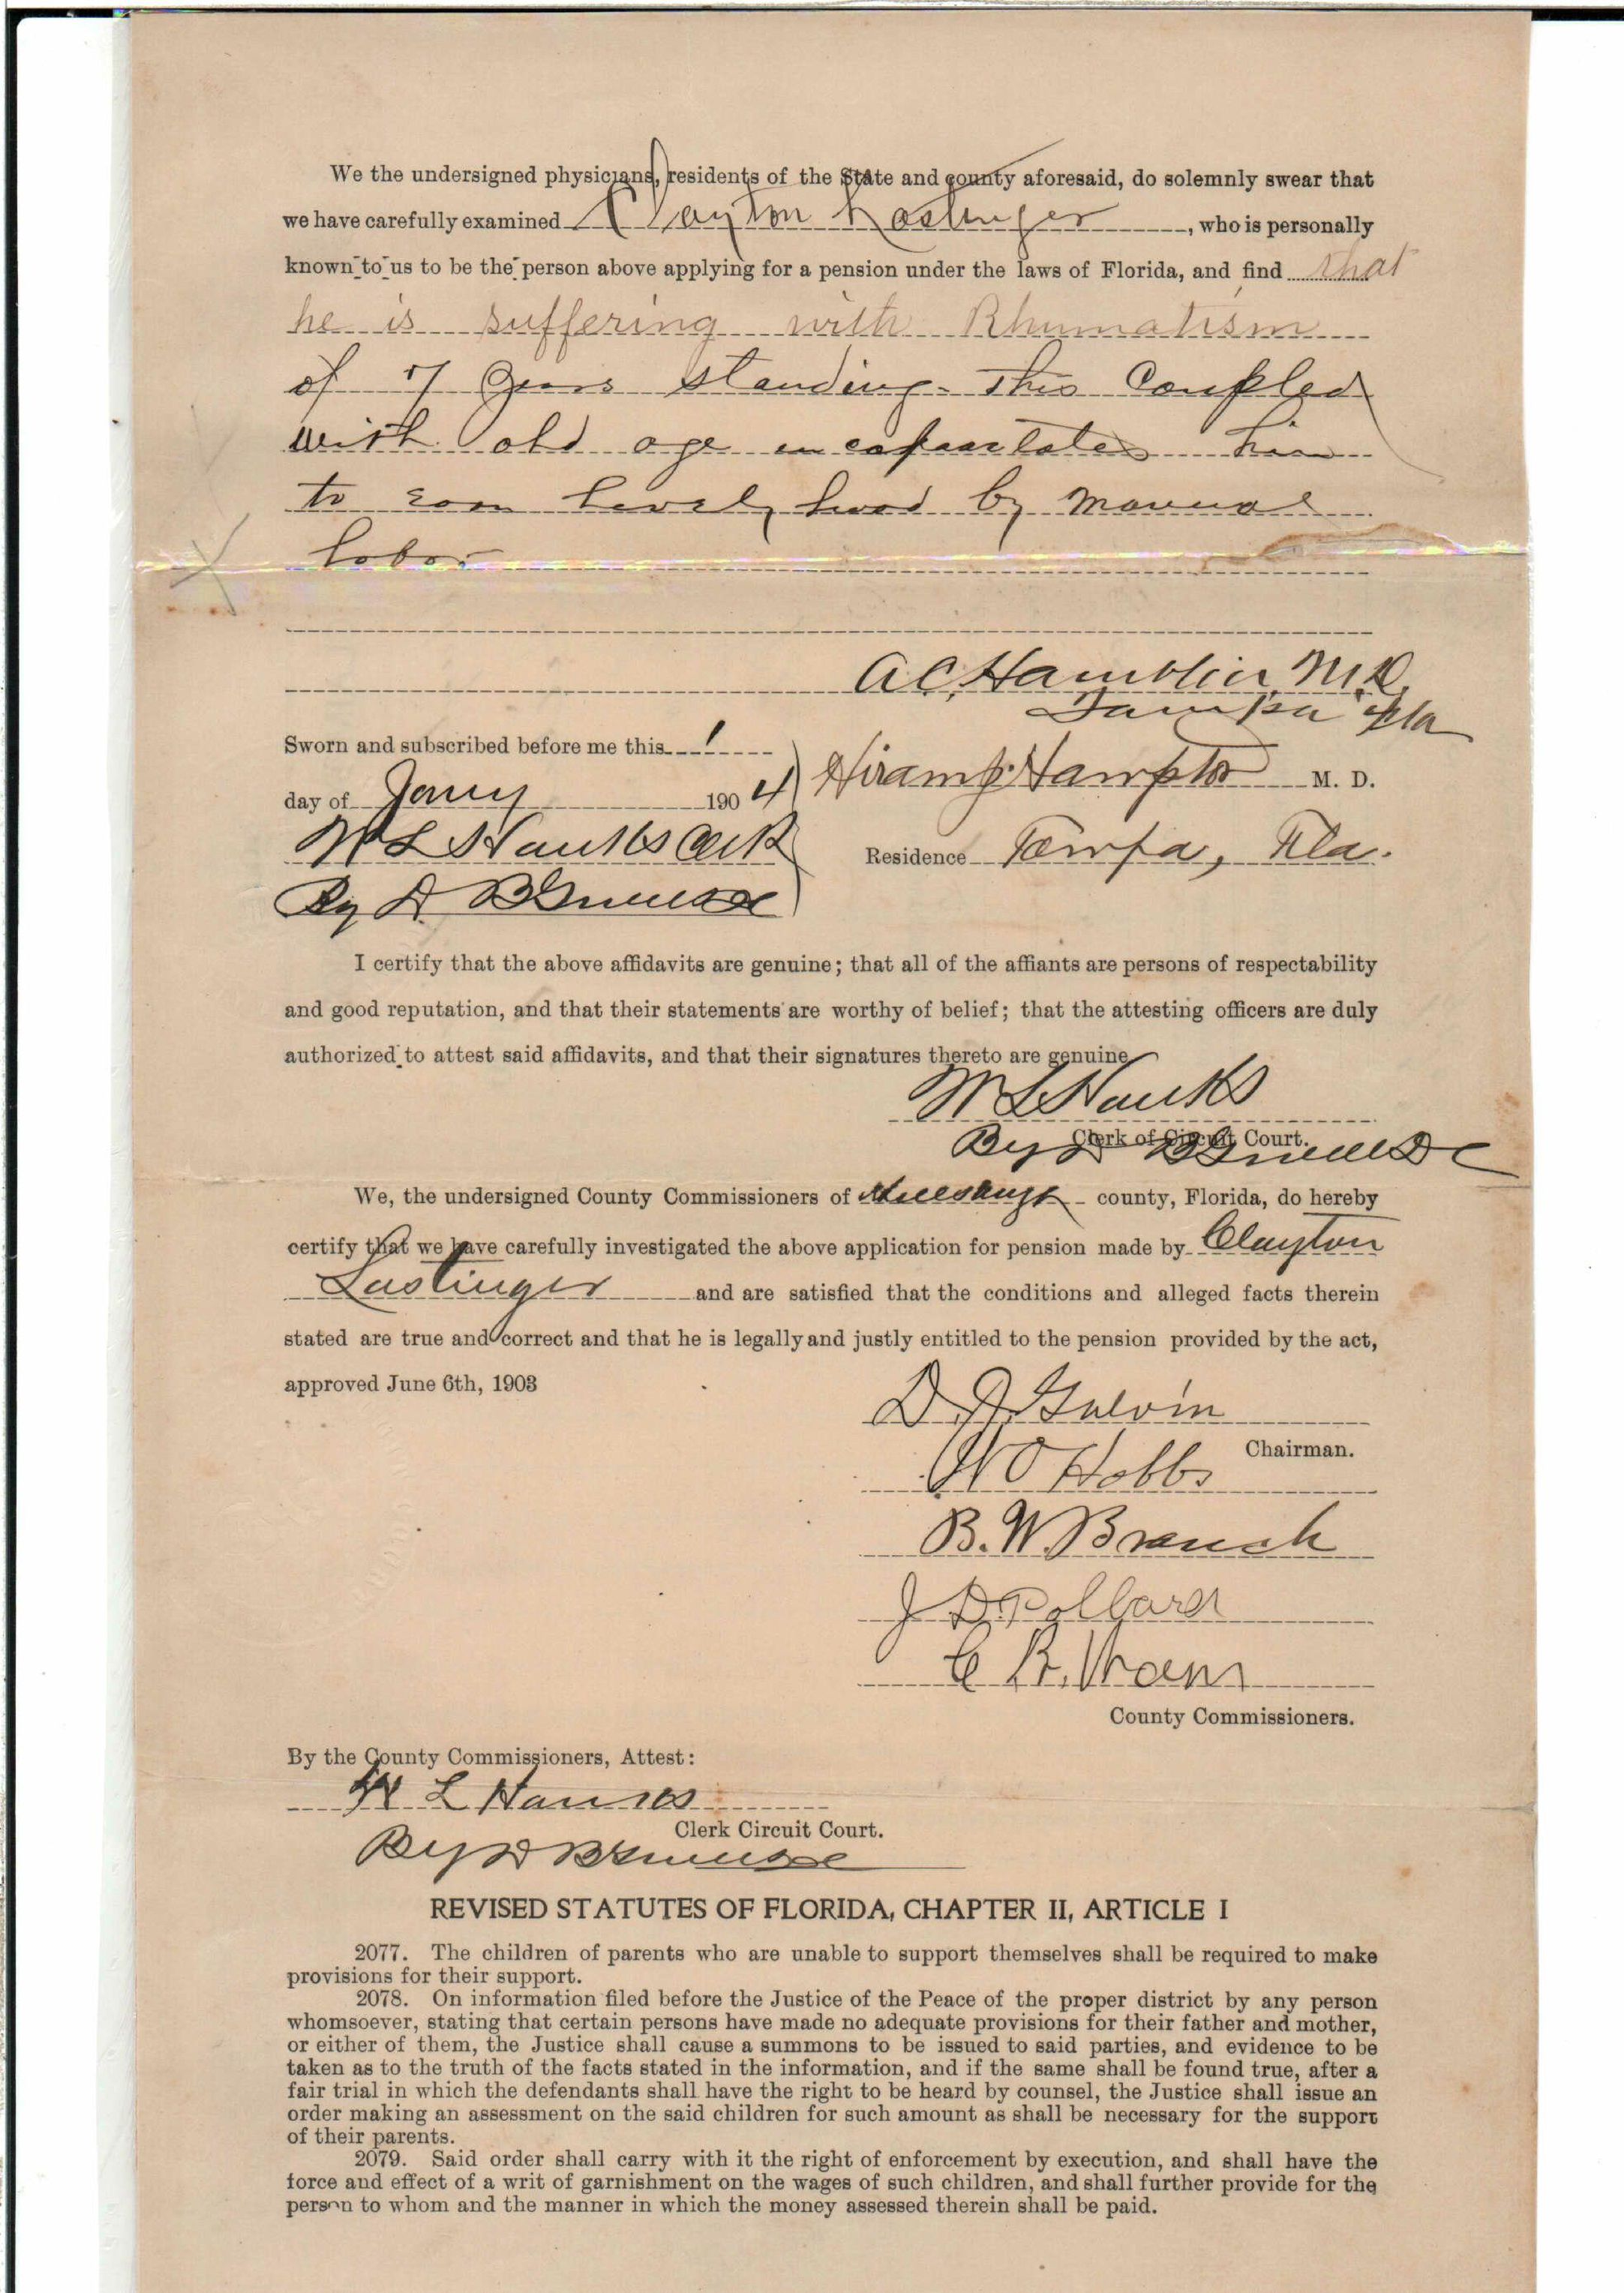 We the undersigned physicians, residents of the State and county aforesaid, do solemnly swear that
we have carefully examined Clayton Lastinger, who is personally
known to us to be the person above applying for a pension under the laws of Florida, and find that
he is suffering with Rhumatism
of 7 years standing - This Coupled
with old age incapacitates him
to earn livelyhood by manual
labor
A C, Hamblin M. D,
Tampa Fla
Sworn and subscribed before me this 1
Hiram J. Hampton M. D.
day of Jany 1904
W L Hanks Clk
Residence Tampa, Fla.
By D B
I certify that the above affidavits are genuine; that all of the affiants are persons of respectability
and good reputation, and that their statements are worthy of belief; that the attesting officers are duly
authorized to attest said affidavits, and that their signatures thereto are genuine
W L Hanks
Clerk of Circuit Court.
By D B DC
We, the undersigned County Commissioners of county, Florida, do hereby
certify that we have carefully investigated the above application for pension made by Clayton
Lastinger and are satisfied that the conditions and alleged facts therein
stated are true and correct and that he is legally and justly entitled to the pension provided by the act,
approved June 6th, 1903
Galvin
Chairman.
W O Hobbs
B. W. Branch
J D Pollard
C B.
County Commissioners.
By the County Commissioners, Attest:
W L Hanks
Clerk Circuit Court.
By D B
REVISED STATUTES OF FLORIDA, CHAPTER II, ARTICLE I
2077. The children of parents who are unable to support themselves shall be required to make
provisions for their support.
2078. On information filed before the Justice of the Peace of the proper district by any person
whomsoever, stating that certain persons have made no adequate provisions for their father and mother,
or either of them, the Justice shall cause a summons to be issued to said parties, and evidence to be
taken as to the truth of the facts stated in the information, and if the same shall be found true, after a
fair trial in which the defendants shall have the right to be heard by counsel, the Justice shall issue an
order making an assessment on the said children for such amount as shall be necessary for the support
of their parents.
2079. Said order shall carry with it the right of enforcement by execution, and shall have the
force and effect of a writ of garnishment on the wages of such children, and shall further provide for the
person to whom and the manner in which the money assessed therein shall be paid.